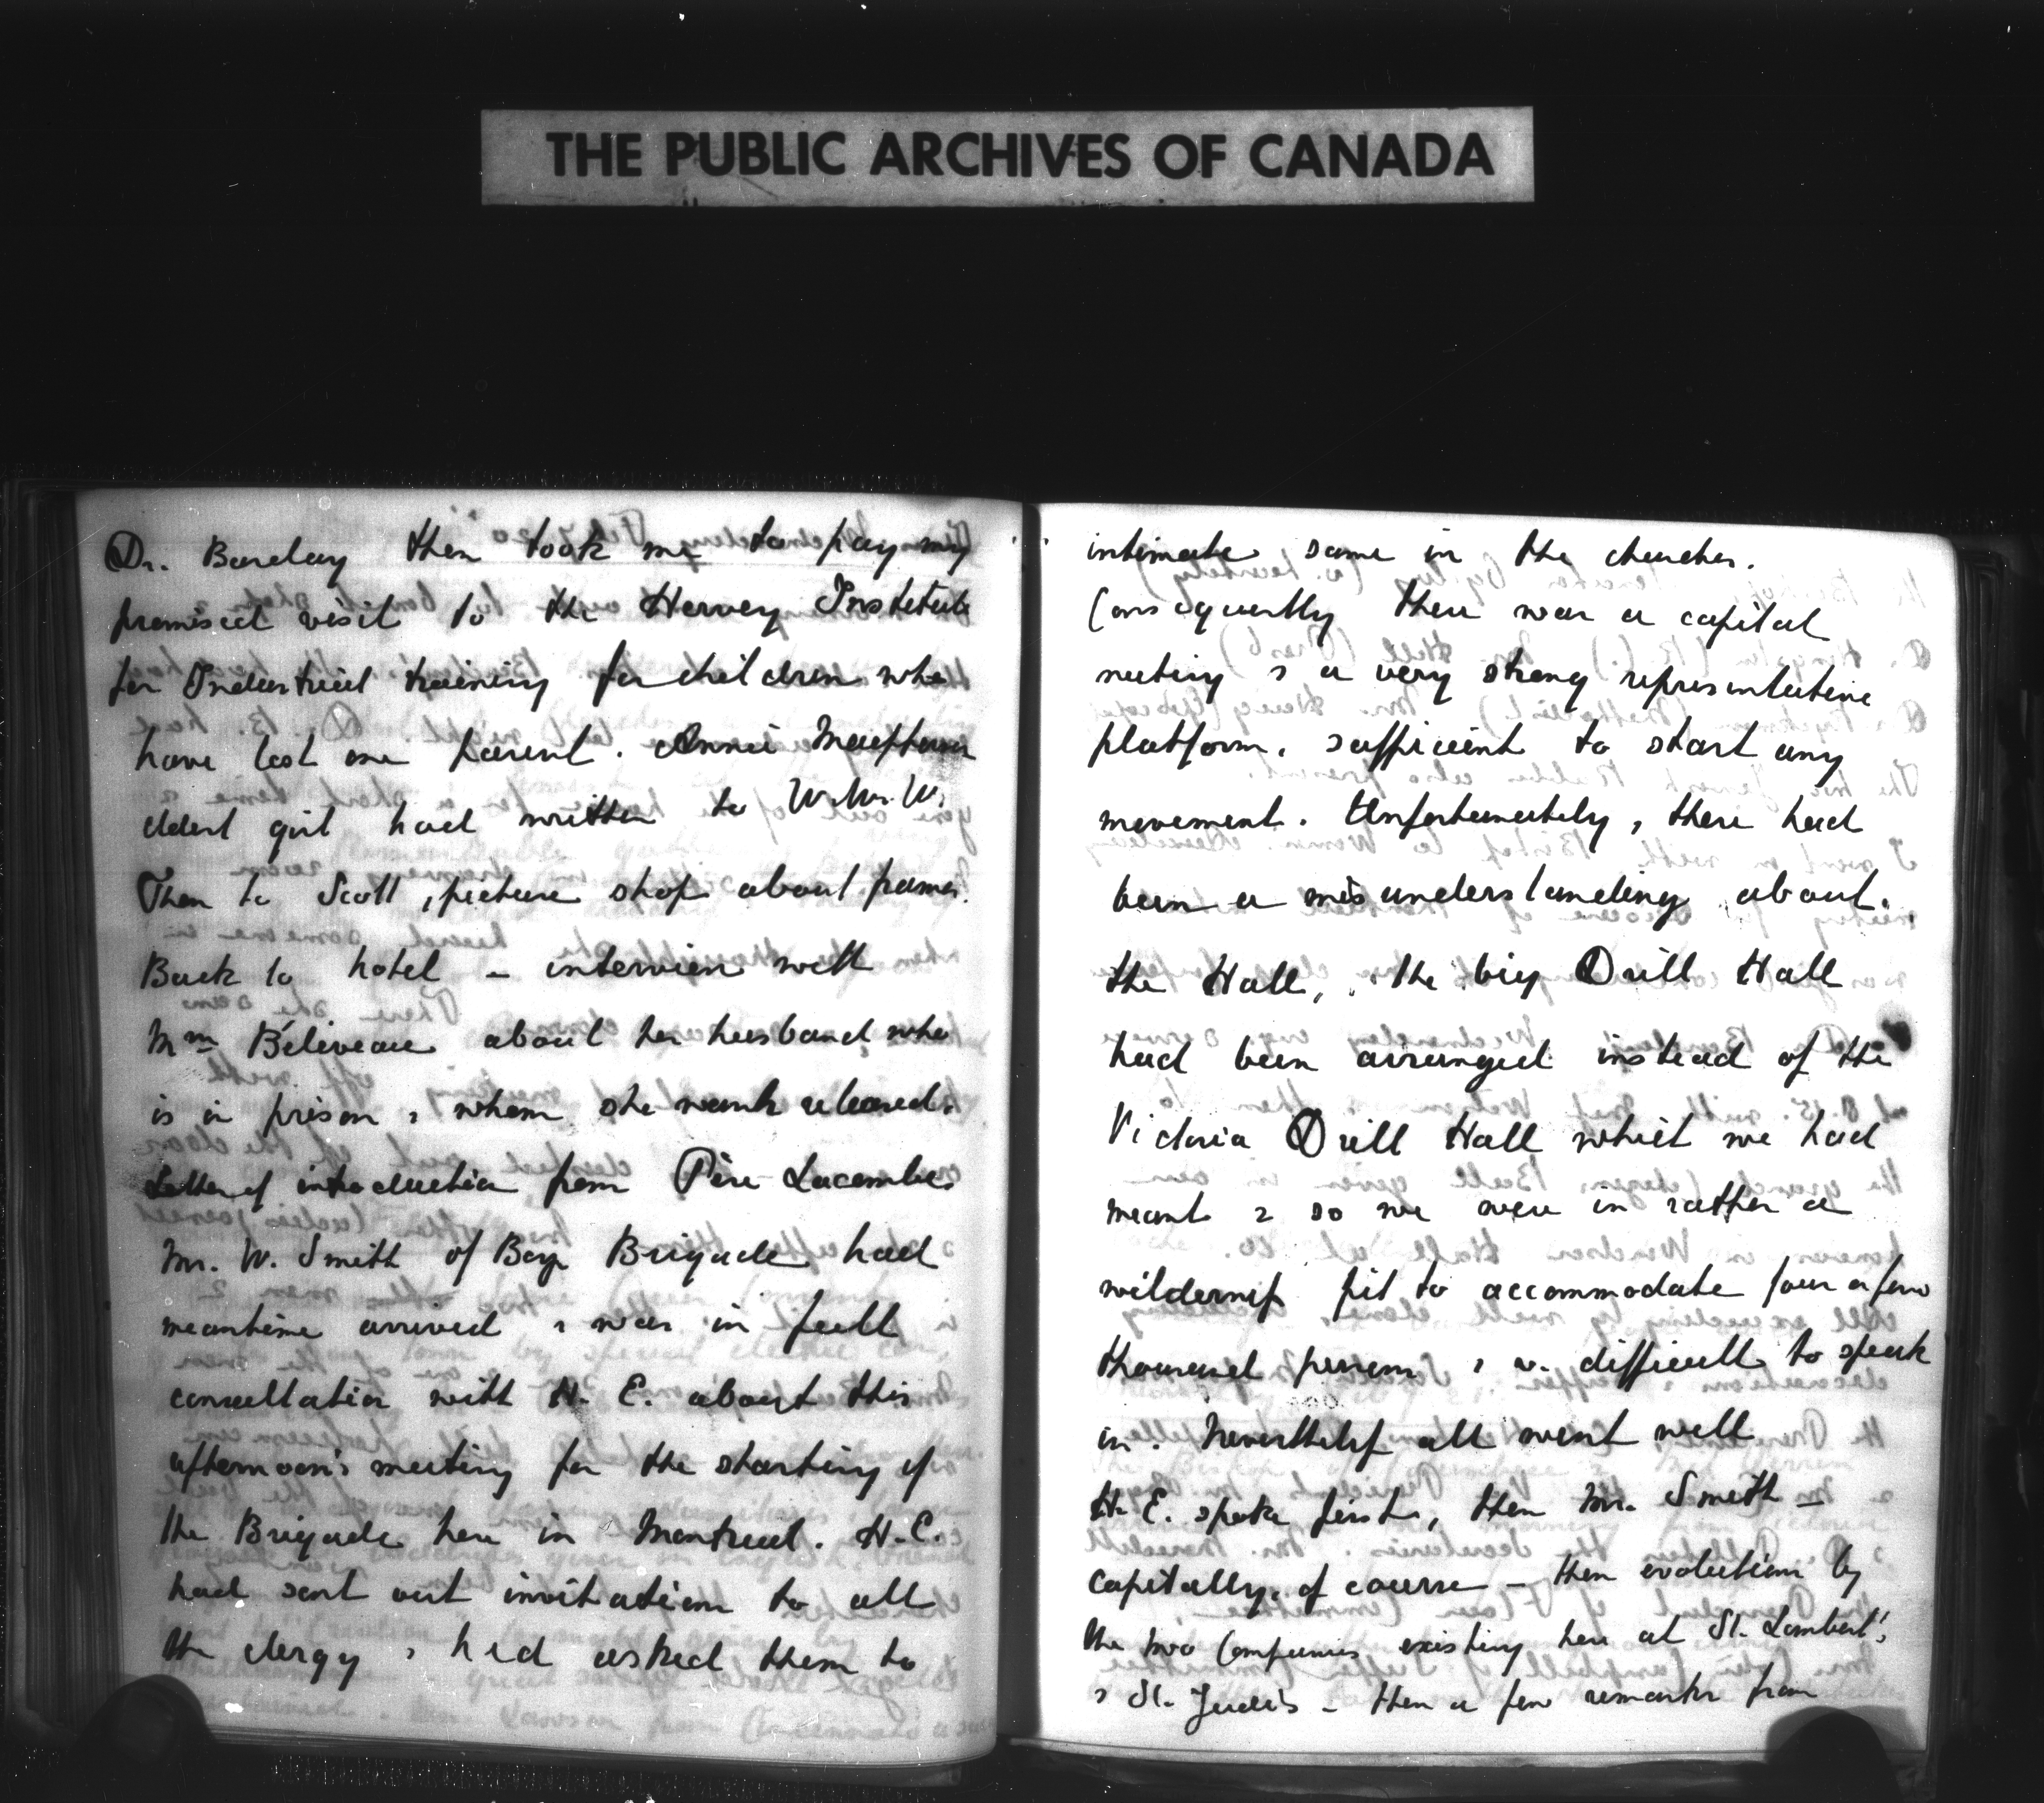 THE PUBLIC ARCHIVES OF CANADA
Dr. Barclay then took me to pay my
promised visit to the Hervey Institute
for Industrial training for children who
have lost one parent. Annie
eldest girl had written to W.W.W.
Then to Scott, picture shop about frames.
Back to hotel – interview with
Mme Béliveau about her husband who
is in prison & whom she wants released.
Letter of introduction from Père Lacombe.
Mr. W. Smith of Boys Brigade had
meantime arrived & was in full
consultation with H. E. about this
afternoon's meeting for the starting of
the Brigade here in Montreal. H.E.
had sent out invitations to all
the clergy & had asked them to
intimate same in the churches.
Consequently there was a capital
meeting & a very strong representative
platform, sufficient to start any
movement. Unfortunately, there had
been a misunderstanding about
the Hall, the big Drill Hall
had been arranged instead of the
Victoria Drill Hall which we had
meant & so we were in rather a
wilderness fit to accommodate four or five
thousand persons & v. difficult to speak
in. Nevertheless all went well
H. E. spoke first, then Mr. Smith –
capitally, of course – then evolutions by
the two Companies existing here at St. Lambert's
& St. Jude's – then a few remarks from